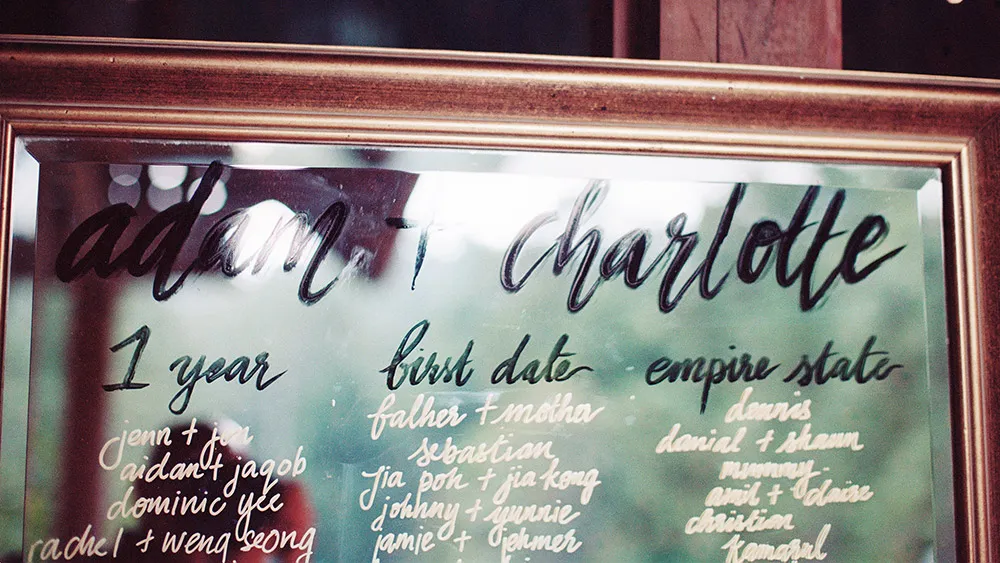 adam + charlotte
1 year
jenn + jon
aidan + jaqob
dominic yee
rachel + weng seong
first date
father + mother
sebastian
jia poh + jia kong
johnny + yunnie
jamie +
empire state
dennis
danial + shaun
mummy
amil + claire
christian
kamarul